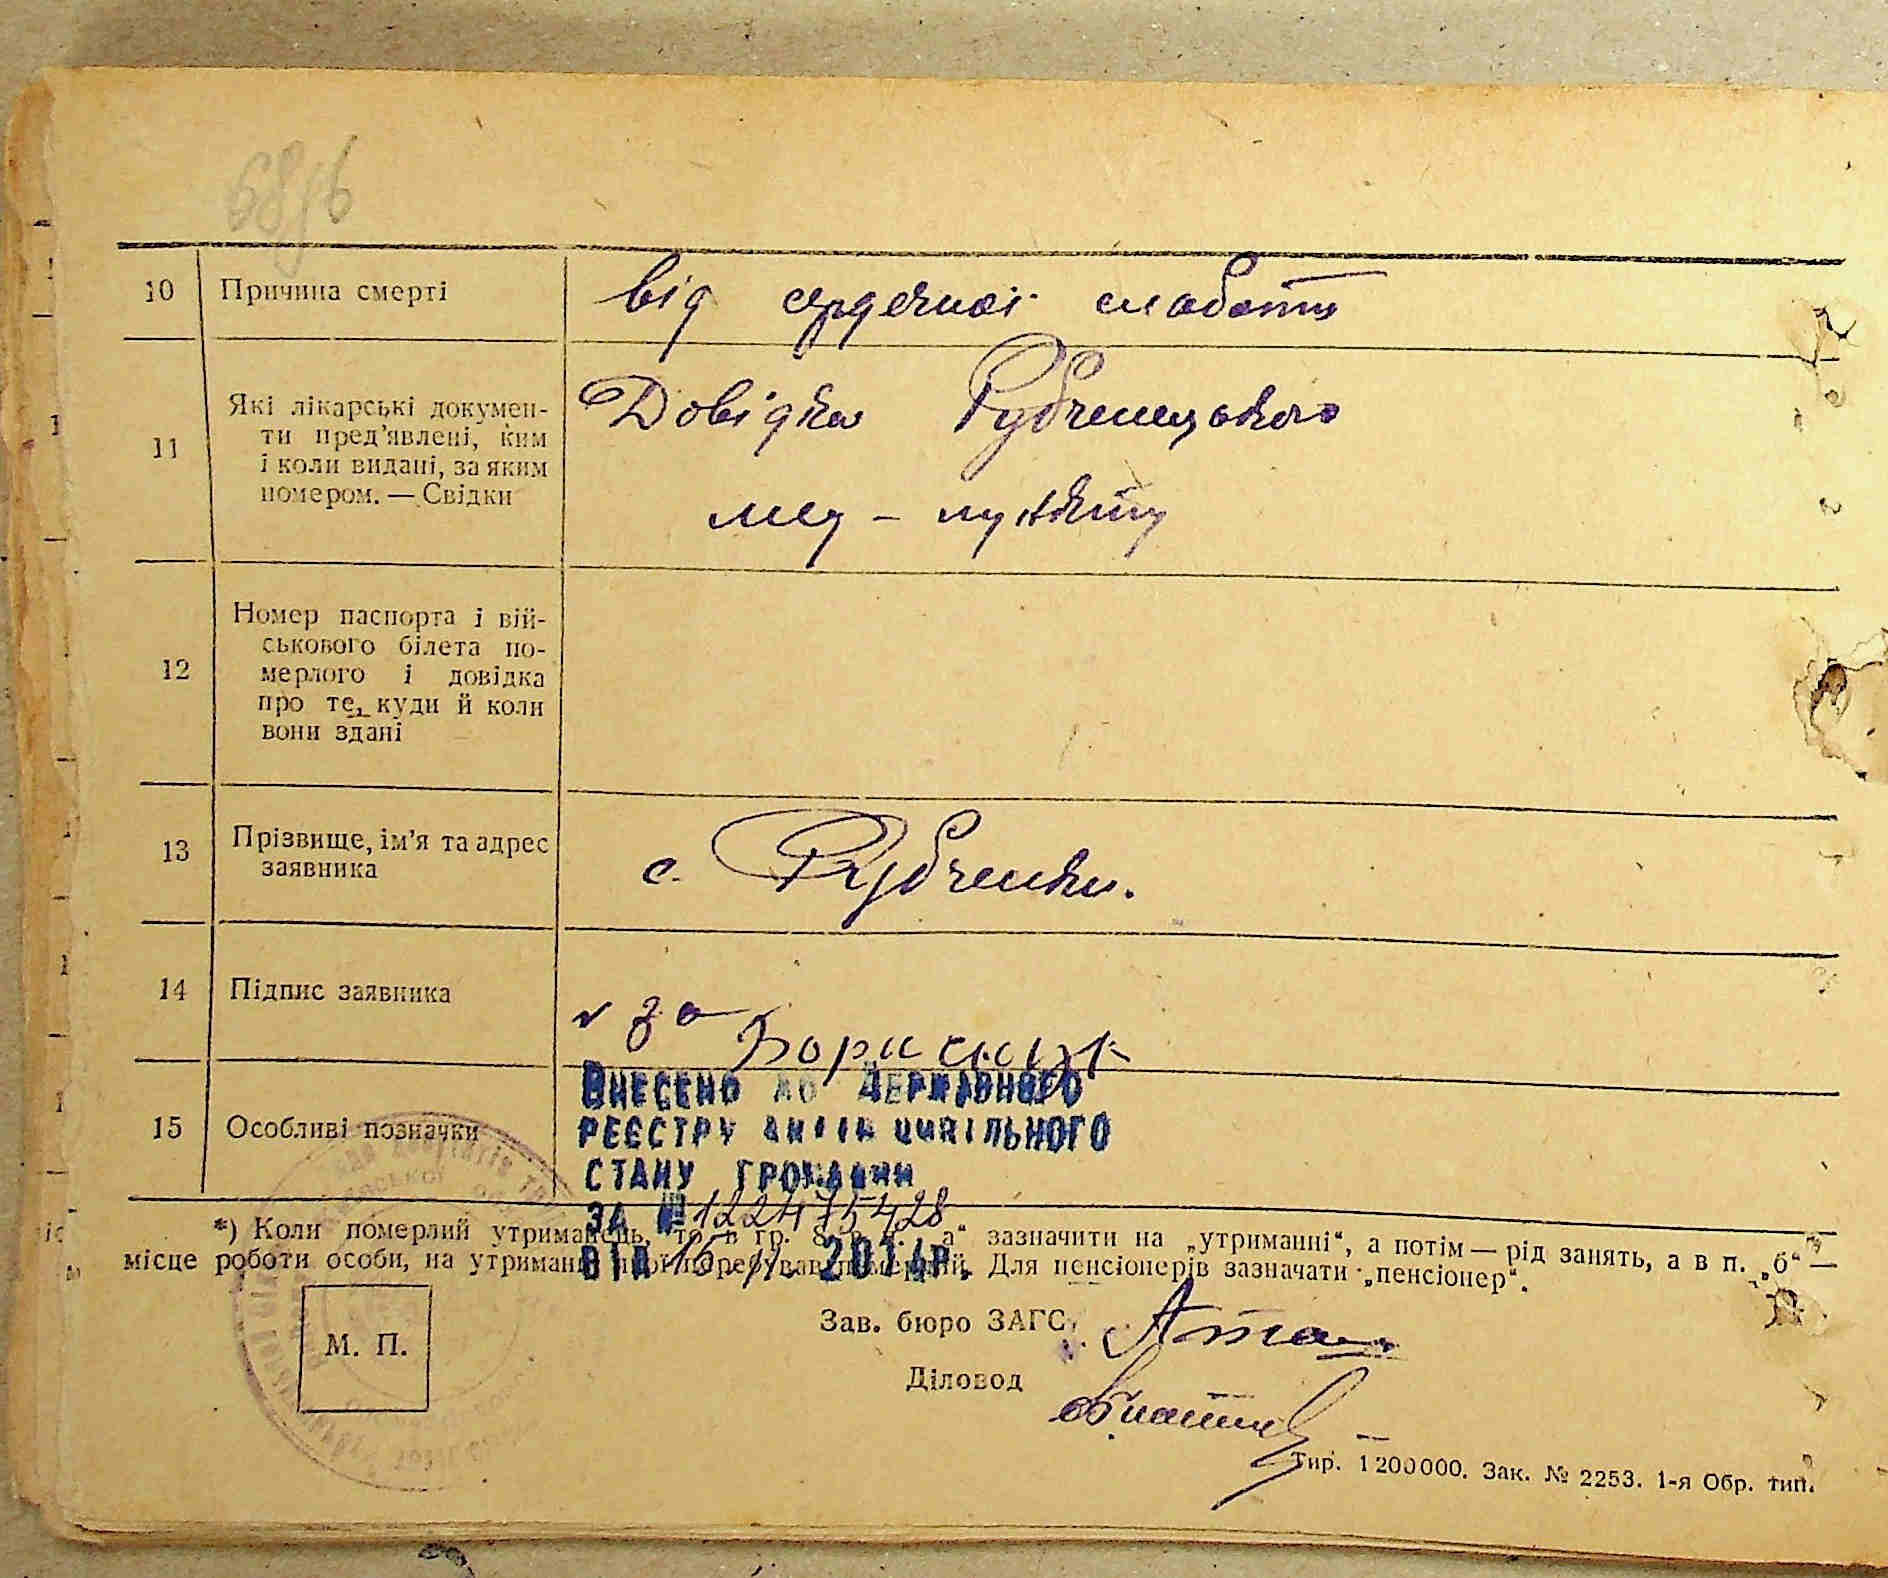 10 Причина смерті від сердечної слаботи
11 Які лікарські докумен-
ти пред'явлені, ким
і коли видані, за яким
номером. — Свідки
Довідка Рубченецького
мед - пункту
12 Номер паспорта і вій-
ськового білета по-
мерлого і довідка
про те, куди й коли
вони здані
13 Прізвище, ім'я та адрес
заявника
с. Рубченки.
14 Підпис заявника
за
Борисюк
15 Особливі позначки
Внесено до Державного
реєстру актів цивільного
стану громадян
за № 122475428
від 15. 2014р.
*) Коли померлий утриманець, то в гр. 8, п. „а“ зазначити на „утриманні“, а потім — рід занять, а в п. „б“ —
місце роботи особи, на утриманні якої перебував померлий. Для пенсіонерів зазначати „пенсіонер“.
М. П.
Зав. бюро ЗАГС
Діловод
Тир. 1200000. Зак. № 2253. 1-я Обр. тип.